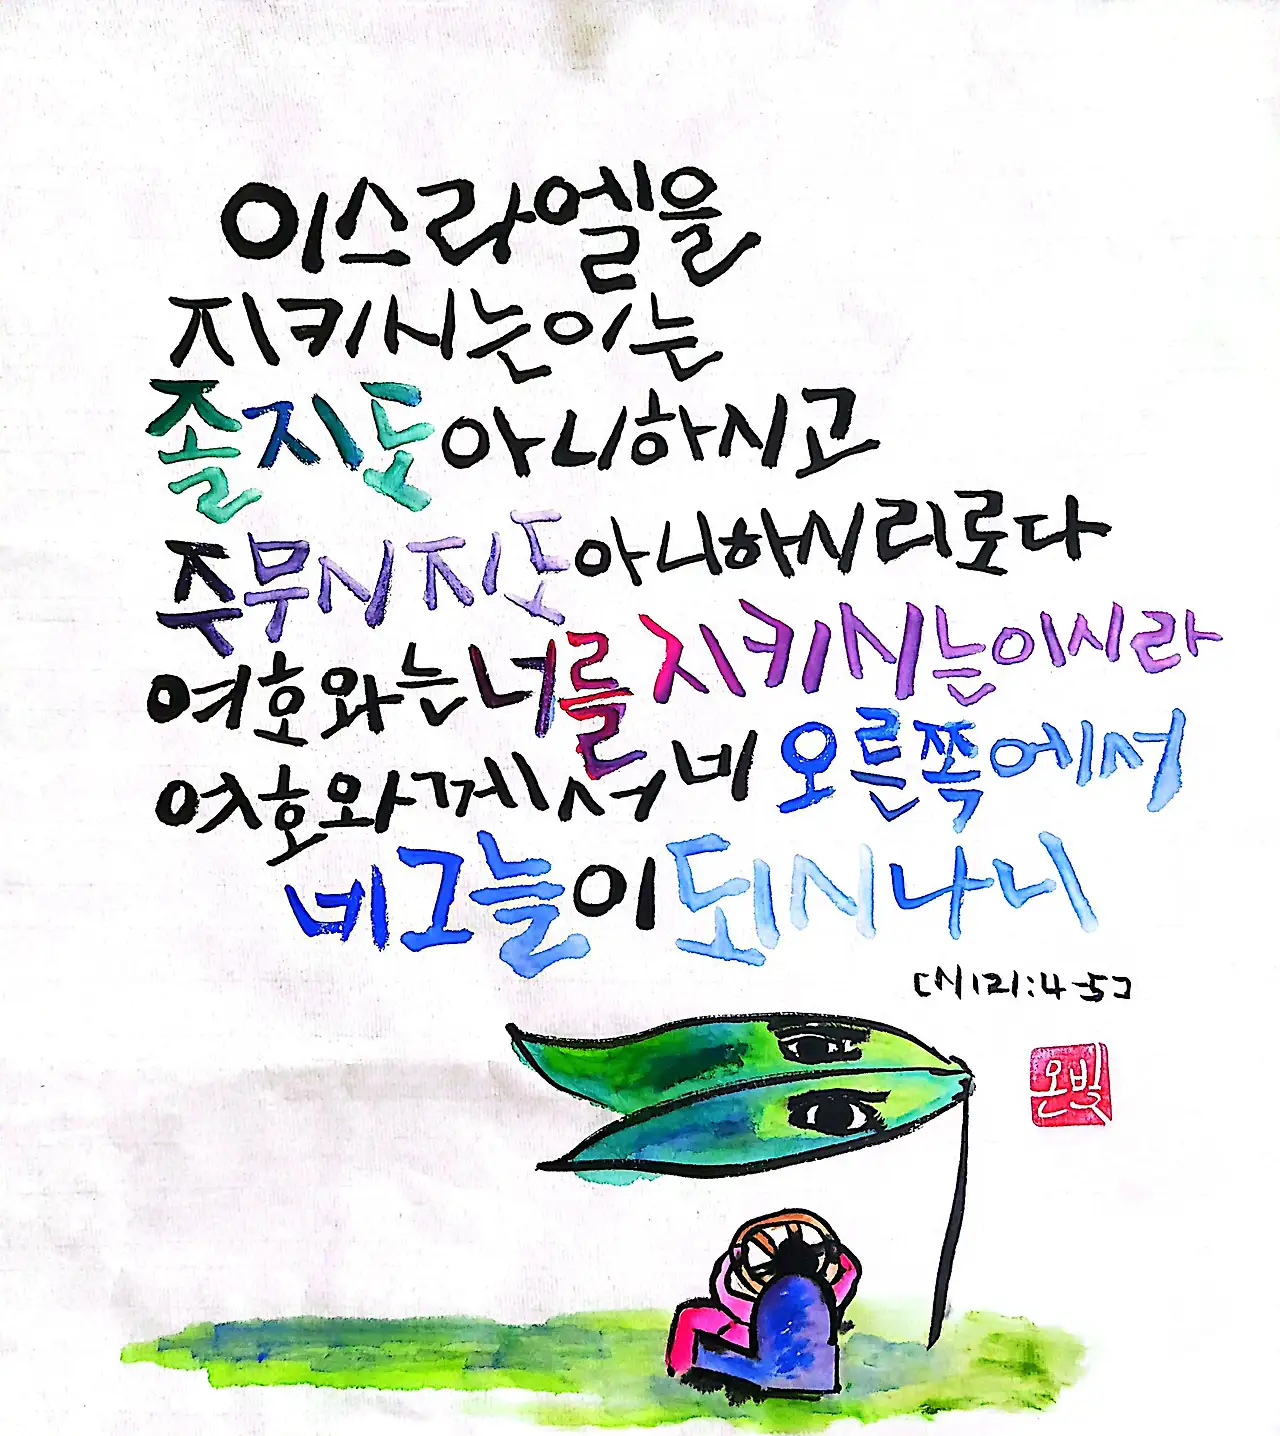 이스라엘을
지키시는이는
졸지도아니하시고
주무시지도아니하시리로다
여호와는너를 지키시는이시라
여호와께서 네 오른쪽에서
네그늘이되시나니
[시121:4-5]
온빛